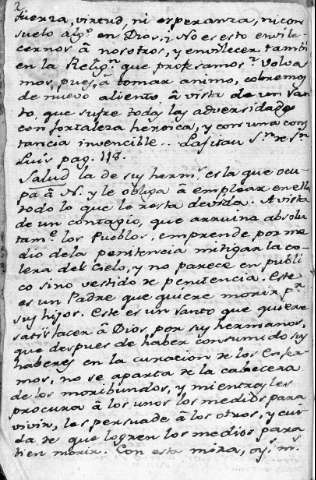 fuerza, virtud, ni esperanza, ni con
suelo alg.º en Dios,? No es esto envile
cernos â nosotros, y envilecer tambn
en la Relig.n que profesamos? Volva
mos, pues, â tomar animo, cobremos
de nuevo aliento â vista de un San
to, que sufre todas las adversidades
con fortaleza heroica, y con una cons
tancia invencible. Lafitau S.n de S.n
Luis pag. 118.
Salud la de sus herm.s es la que ocu
pa â N. y le obliga â emplear en ella
todo lo que le resta de vida. A vista
de un contagio, que arruina absolu
tam.e los Pueblos, emprende por me
dio de la penitencia mitigar la co
lera del Cielo, y no parece en publi
co sino vestido de penitencia. Este
es un Padre que quiere morir p.r
sus hijos. Este es un Santo que quiere
satisfacer â Dios por sus hermanos,
que despues de haber consumido sus
haberes en la curacion de los Enfer
mos, no se aparta de la cabecera
de los moribundos, y mientras les
procura â los unos los medios para
vivir, les persuade â los otros, y cui
da de que logren los medios para
bien morir. Con esta mira,